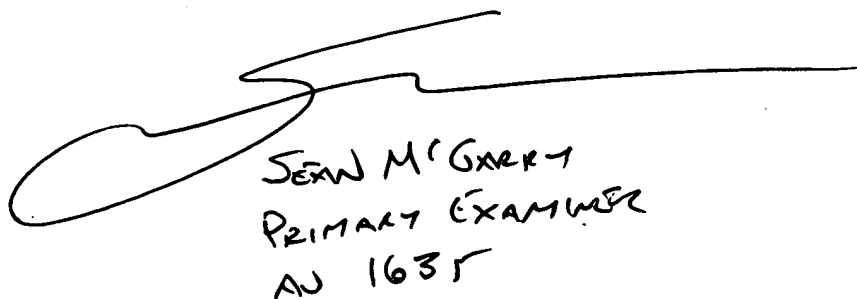 SEAN McGARRY
PRIMARY EXAMINER
AU 1635